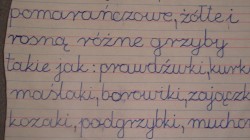 pomarańczowe, żółte i
rosną różne grzyby
takie jak: prawdziwki, kurki
maślaki, borowiki, zajączk
kozaki, podgrzybki, mucho